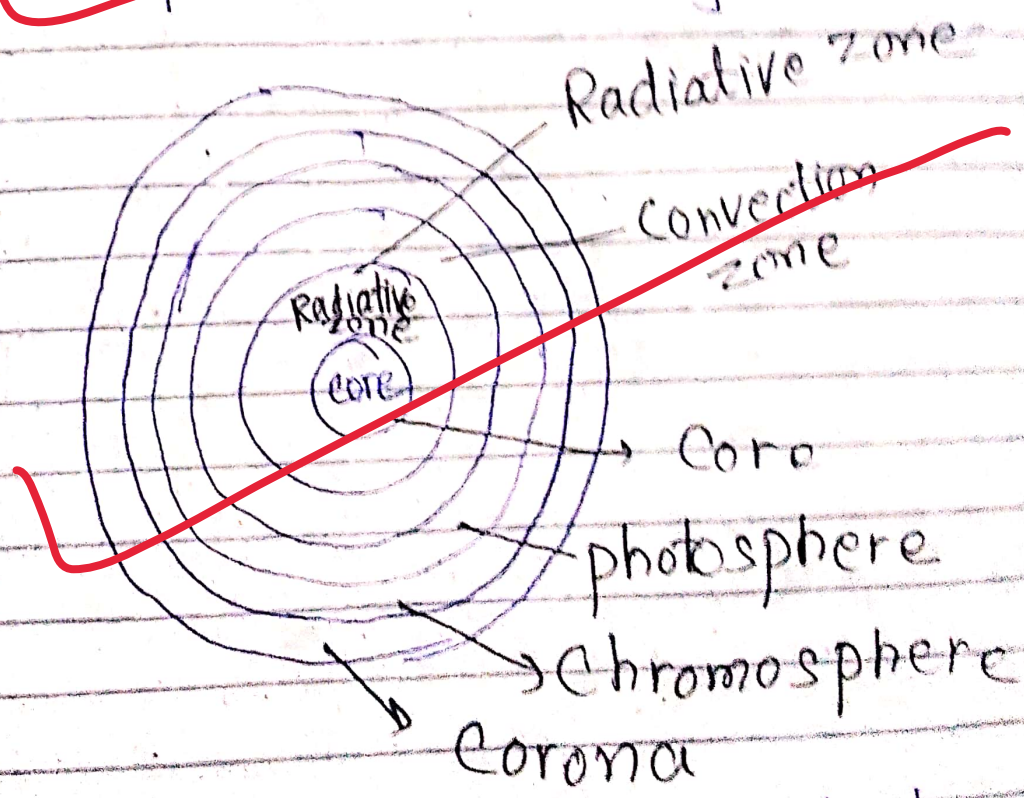 Radiative zone
Convection
zone
Radiative
zone
core
Coro
photosphere
Chromosphere
Corona